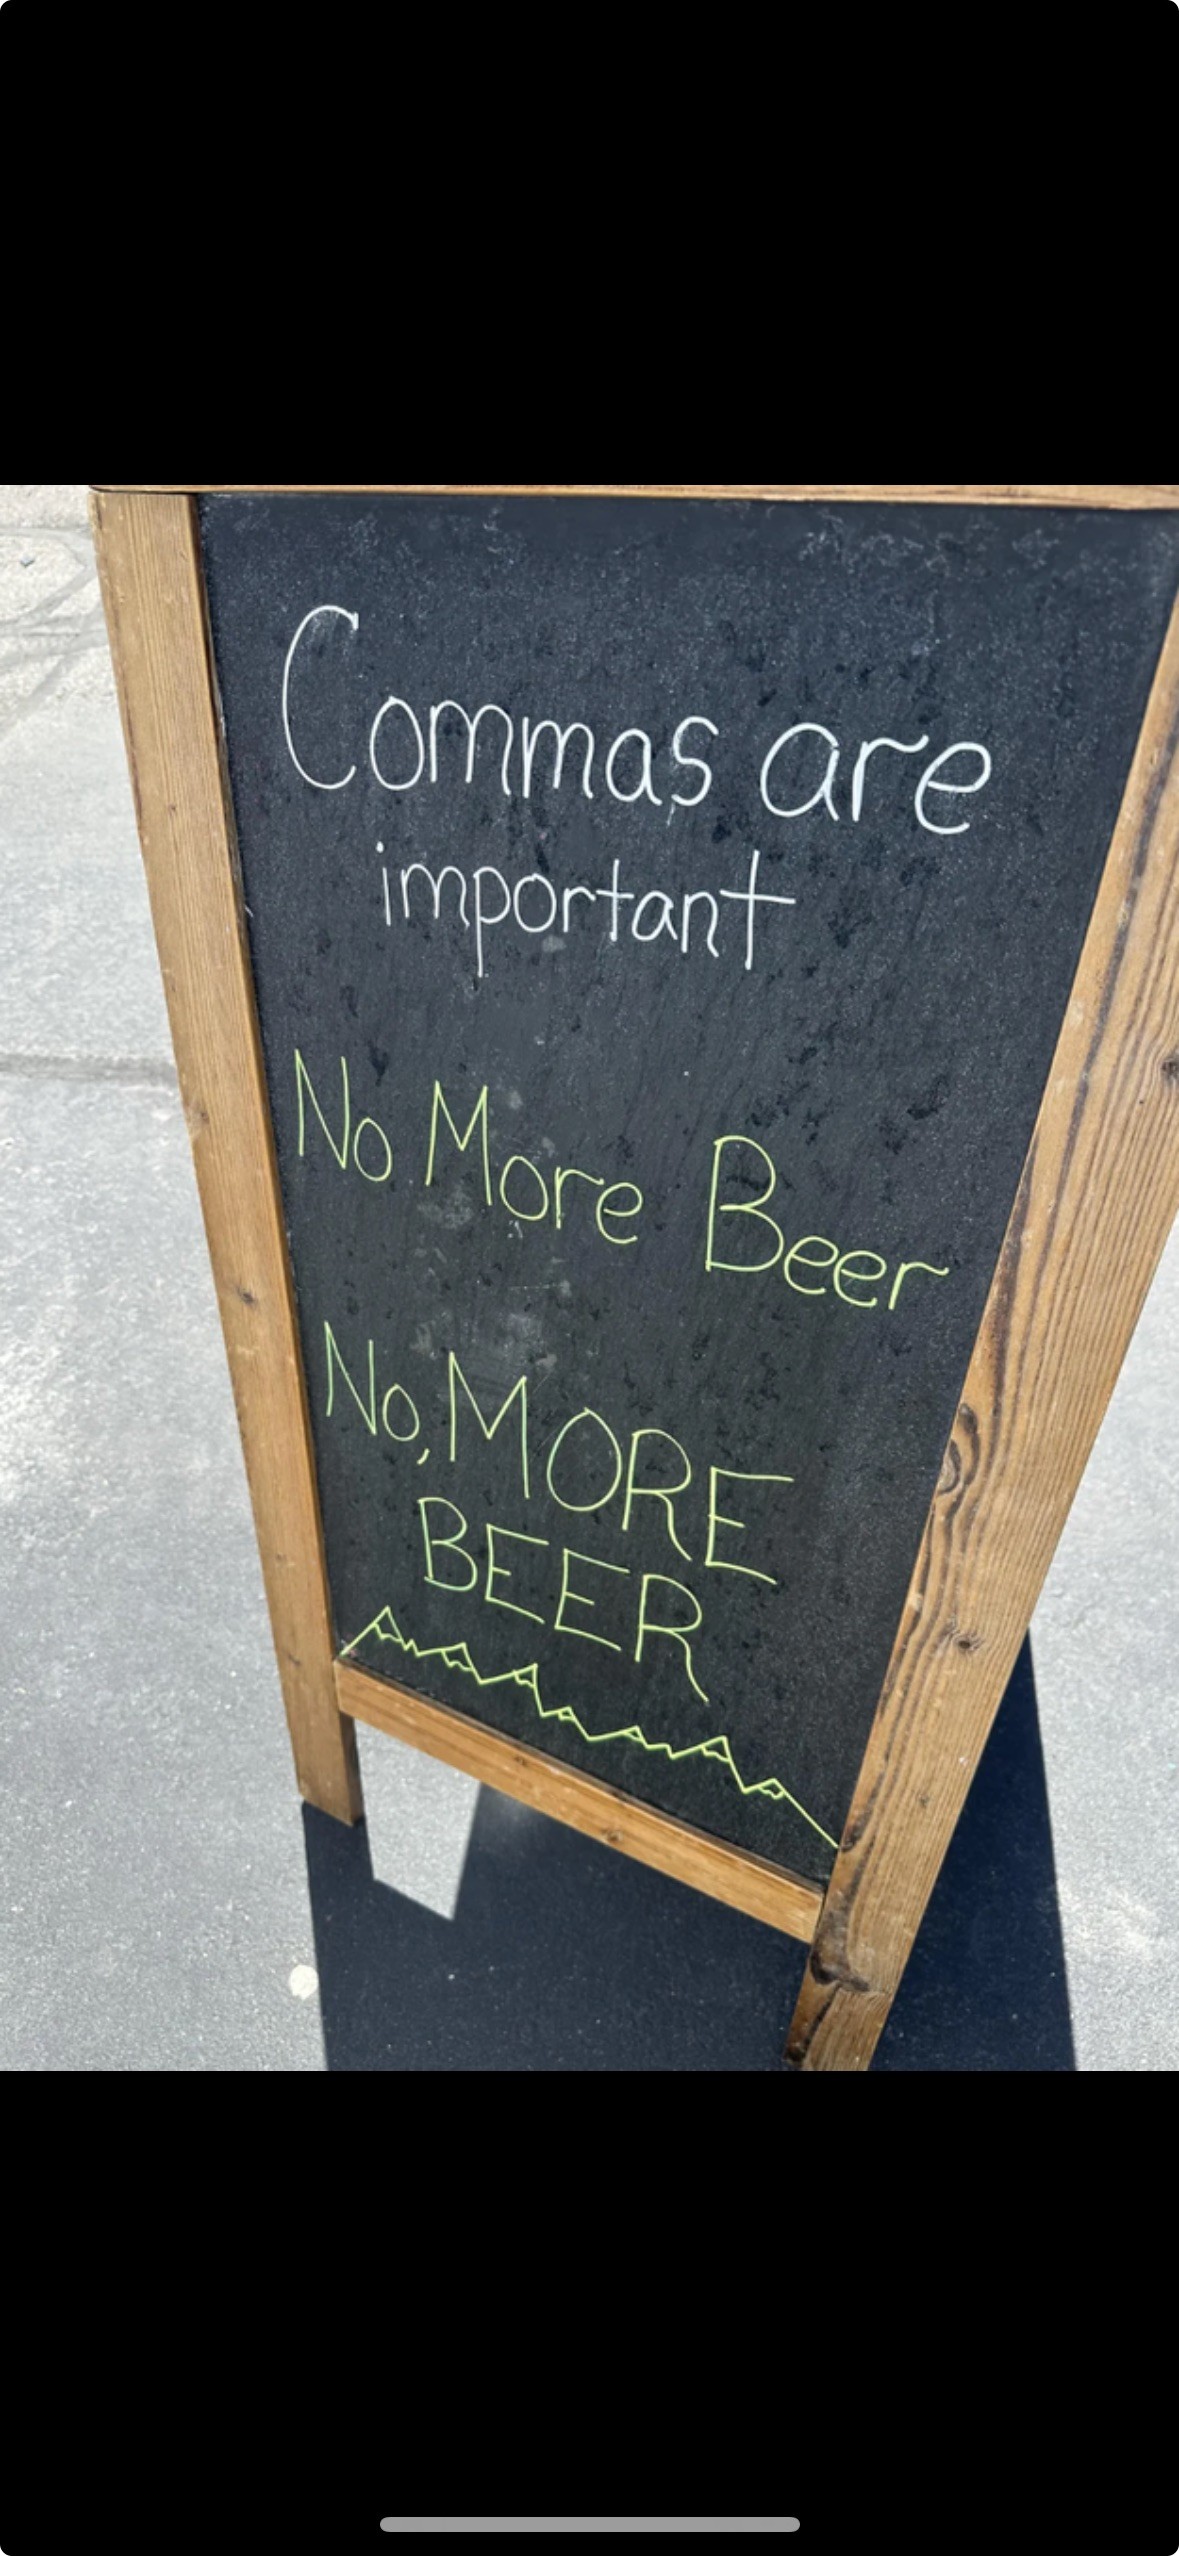 Commas are
important
No More Beer
No, MORE
BEER